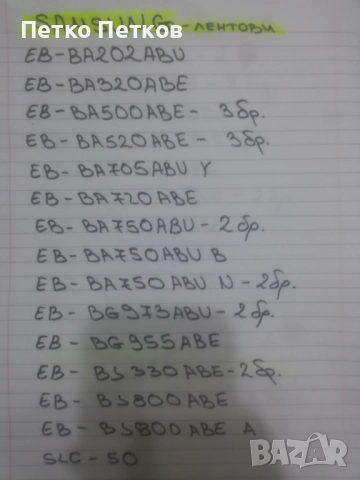 Петко Петков
SAMSUNG - ЛЕНТОВИ
EB-BA202ABU
EB-BA320ABE
EB-BA500ABE - 3бр.
EB-BA520ABE - 3бр.
EB-BA705ABU Y
EB-BA720ABE
EB-BA750ABU-2бр.
EB-BA750ABU B
EB-BA750ABU N-2бр.
EB-BG973ABU-2бр.
EB-BG955ABE
EB-BJ330ABE-2бр.
EB-BJ800ABE
EB-BJ800ABE A
SLC-50
BAZAR
bg